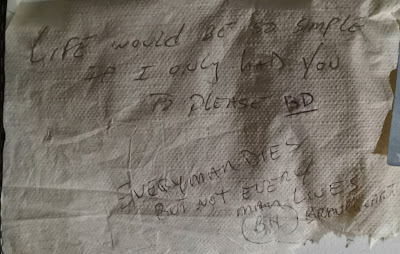 LIFE WOULD BE SO SIMPLE
IF I ONLY HAD YOU
TO PLEASE BD
EVERY MAN DIES
BUT NOT EVERY
MAN LIVES
BH BRAVEHEART